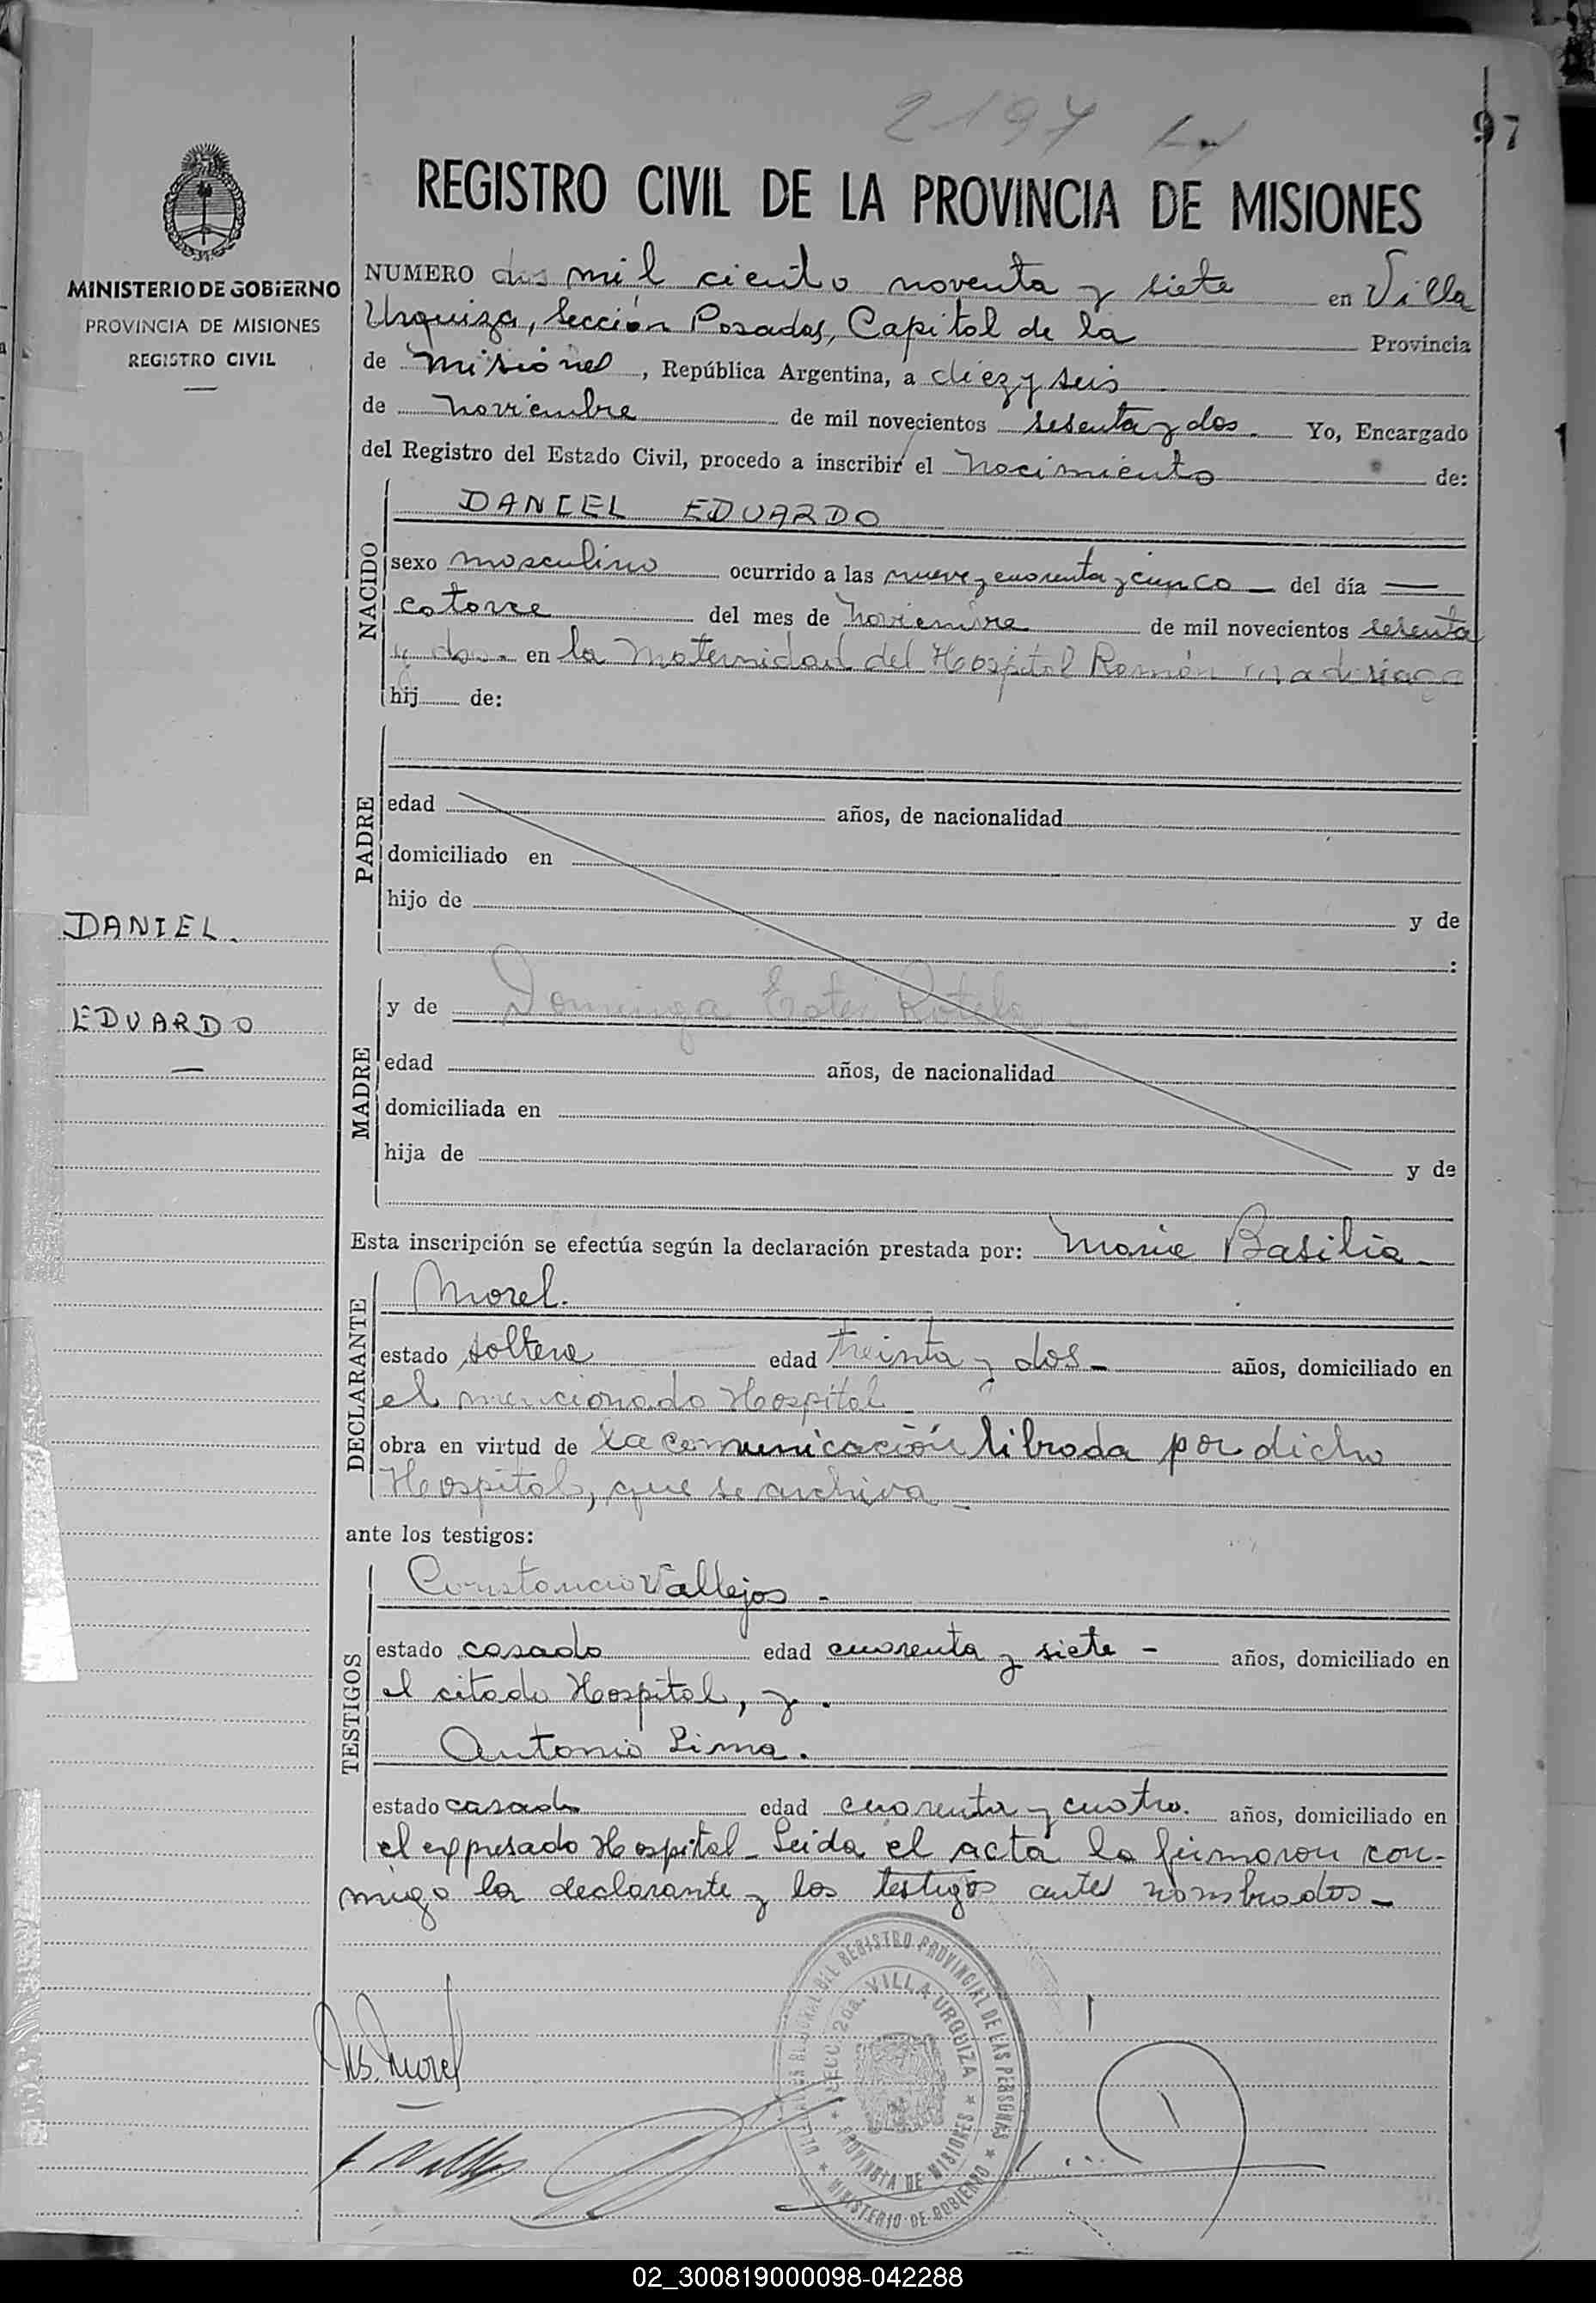 2197
97
REGISTRO CIVIL DE LA PROVINCIA DE MISIONES
MINISTERIO DE GOBIERNO
PROVINCIA DE MISIONES
REGISTRO CIVIL
NUMERO dos mil ciento noventa y siete en Villa
Urquiza, Sección Posadas, Capital de la Provincia
de Misiones, República Argentina, a diez y seis
de noviembre de mil novecientos sesenta y dos. Yo, Encargado
del Registro del Estado Civil, procedo a inscribir el nacimiento de:
NACIDO
DANIEL EDUARDO
sexo masculino ocurrido a las nueve y cuarenta y cinco del día
catorce del mes de noviembre de mil novecientos sesenta
y dos. en la Maternidad del Hospital Ramón Madariaga
hij de:
PADRE
edad años, de nacionalidad
domiciliado en
hijo de y de
:
DANIEL.
EDUARDO
MADRE
y de Dominga Ester
edad años, de nacionalidad
domiciliada en
hija de y de
Esta inscripción se efectúa según la declaración prestada por: Maria Basilia
DECLARANTE
Morel.
estado soltera edad treinta y dos años, domiciliado en
el mencionado Hospital
obra en virtud de la comunicación librada por dicho
Hospital, que se archiva
ante los testigos:
TESTIGOS
Constancio Vallejos
estado casado edad cuarenta y siete - años, domiciliado en
el citado Hospital, y.
Antonio Lima.
estado casado edad cuarenta y cuatro. años, domiciliado en
el expresado Hospital - Leida el acta la firmaron con-
migo la declarante y los testigos antes nombrados -
REGISTRO PROVINCIAL DE LAS PERSONAS
SECC. 2da. VILLA URQUIZA
PROVINCIA DE MISIONES
MINISTERIO DE GOBIERNO
Morel
02_300819000098-042288